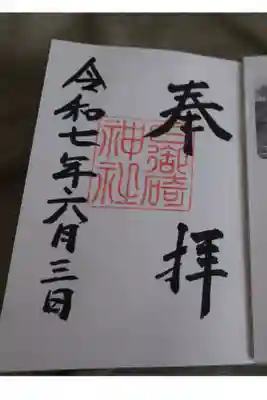 奉拝
御碕
神社
令和七年六月三日